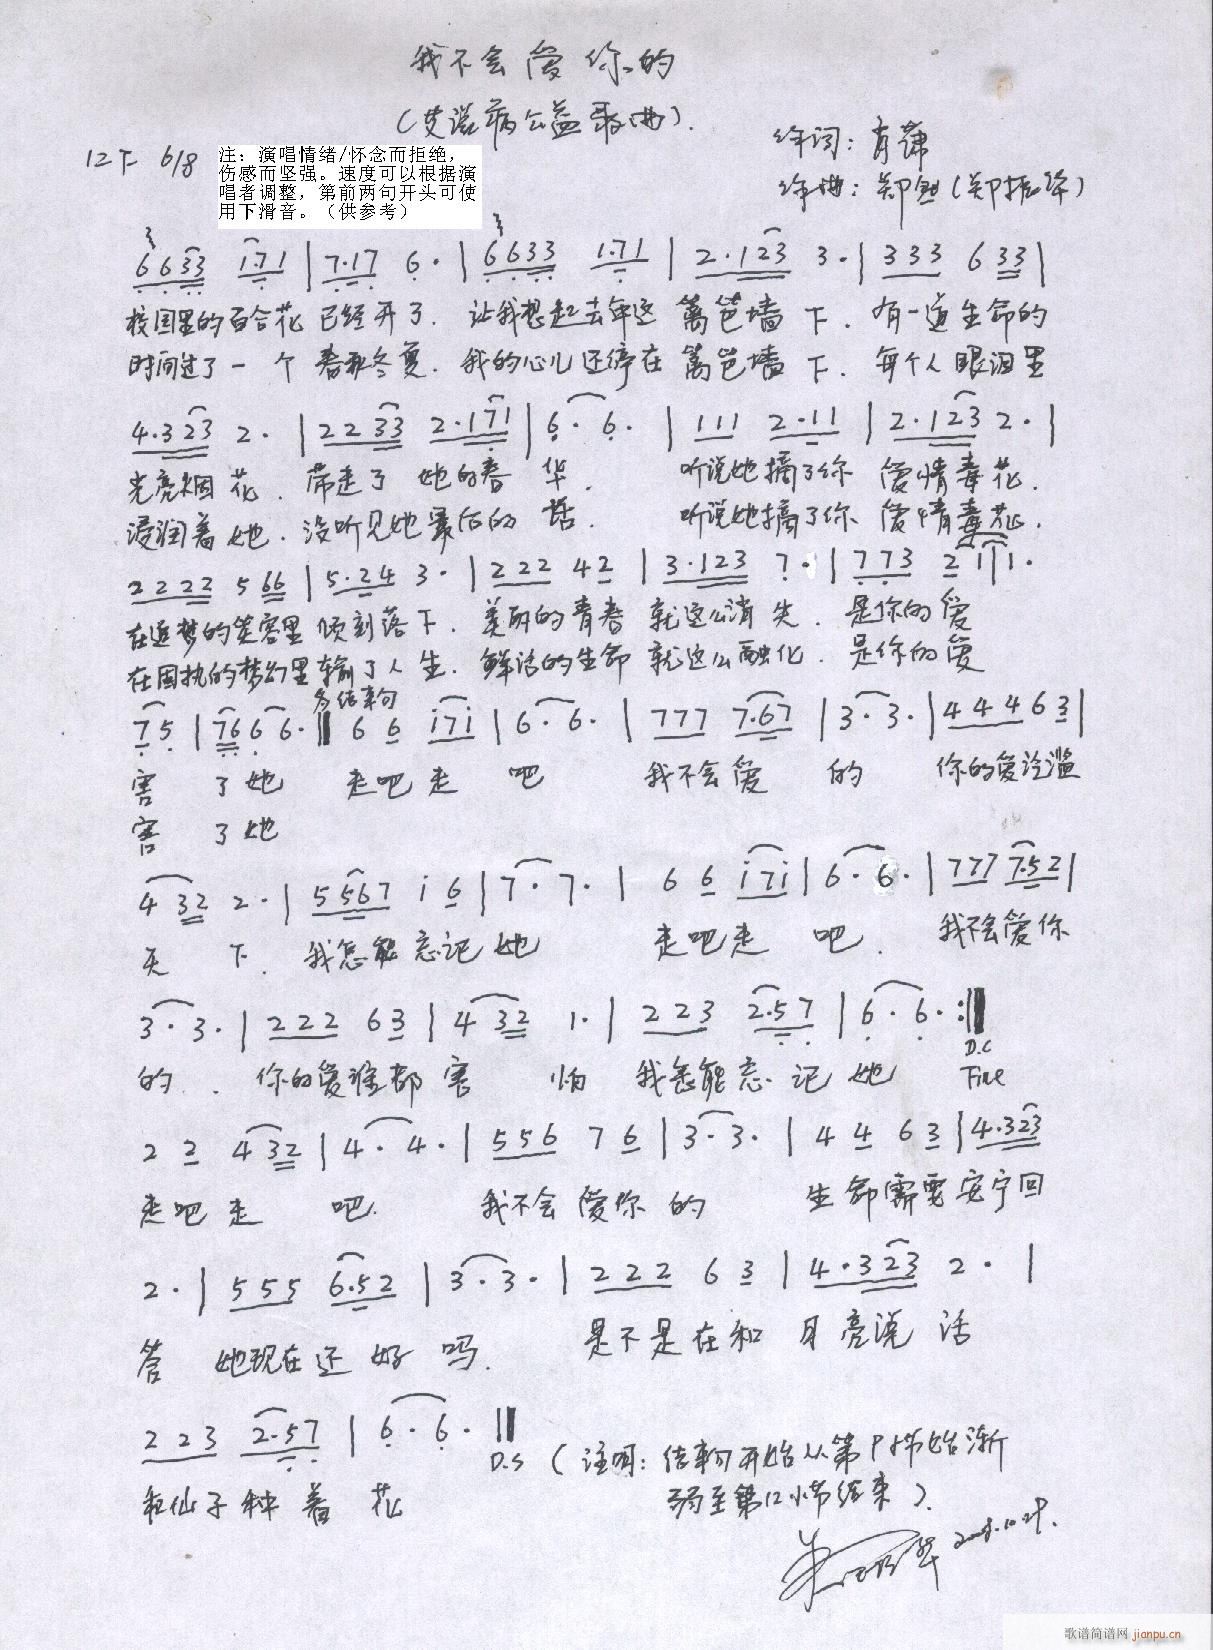 我不会爱你的
(艾滋病公益歌曲).
作词: 肖萧
作曲: 郑(郑振华)
1=下 6/8
注: 演唱情绪/怀念而拒绝,
伤感而坚强。速度可以根据演
唱者调整, 第前两句开头可使
用下滑音。(供参考)
6 6 3 3 1.71 | 7.17 6. | 6 6 3 3 1.71 | 2.123 3. | 3 3 3 6 3 3 |
校园里的百合花 已经开了. 让我想起去年这 篱笆墙 下. 有一道生命的
时间过了一个 春秋冬夏. 我的心儿还停在 篱笆墙 下. 每个人眼泪里
4.323 2. | 2 2 3 3 2.171 | 6. 6. | 1 1 1 2.11 | 2.123 2. |
光亮烟花. 带走了 她的春 华. 听说她摘了你 爱情毒花.
浸润着她. 没听见她最后的 话. 听说她摘了你 爱情毒花.
2 2 2 2 5 6 6 | 5.24 3. | 2 2 2 4 2 | 3.123 7. | 7 7 3 2 1 | 1.
在追梦的笑容里 倾刻落下. 美丽的青春 就这么消 失. 是你的爱
在固执的梦幻里 输了人生. 鲜活的生命 就这么融化. 是你的爱
为结束句
7 5 | 7 6 6 6. ‖ 6 6 i 7 i | 6. 6. | 7 7 7 7.67 | 3. 3. | 4 4 4 6 3 |
害 了她 走吧走 吧 我不会爱 的 你的爱泛滥
害 了她
4 3 2 2. | 5 5 6 7 i 6 | 7. 7. | 6 6 i 7 i | 6. 6. | 7 7 7 7.52 |
天 下. 我怎能忘记她 走吧走 吧. 我不会爱你
3. 3. | 2 2 2 6 3 | 4 3 2 1. | 2 2 3 2.57 | 6. 6. :‖
D.C
的. 你的爱谁都害 怕 我怎能忘记她 Fine
2 2 4 3 2 | 4. 4. | 5 5 6 7 6 | 3. 3. | 4 4 6 3 | 4.323
走吧走 吧. 我不会爱你的 生命需要安宁回
2. | 5 5 5 6.52 | 3. 3. | 2 2 2 6 3 | 4.323 2. |
答 她现在还好吗. 是不是在和月亮说话
2 2 3 2.57 | 6. 6. ‖
D.S (注明: 结束句开始从第P小节始渐
和仙子种着花 弱至第12小节结束).
歌谱简谱网 jianpu.cn